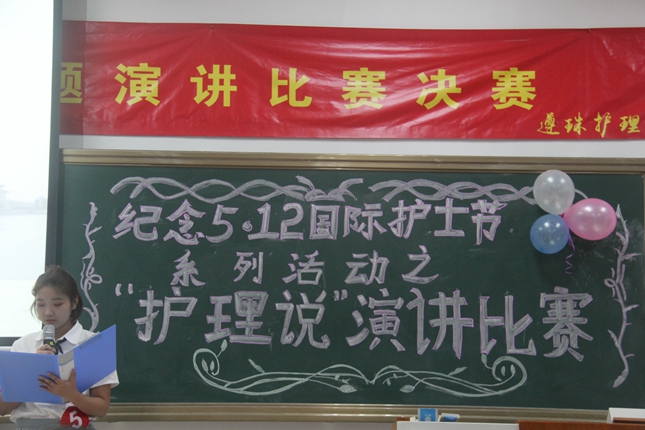 题演讲比赛决赛
遵珠护理
纪念5·12国际护士节
系列活动之
“护理说”演讲比赛
5